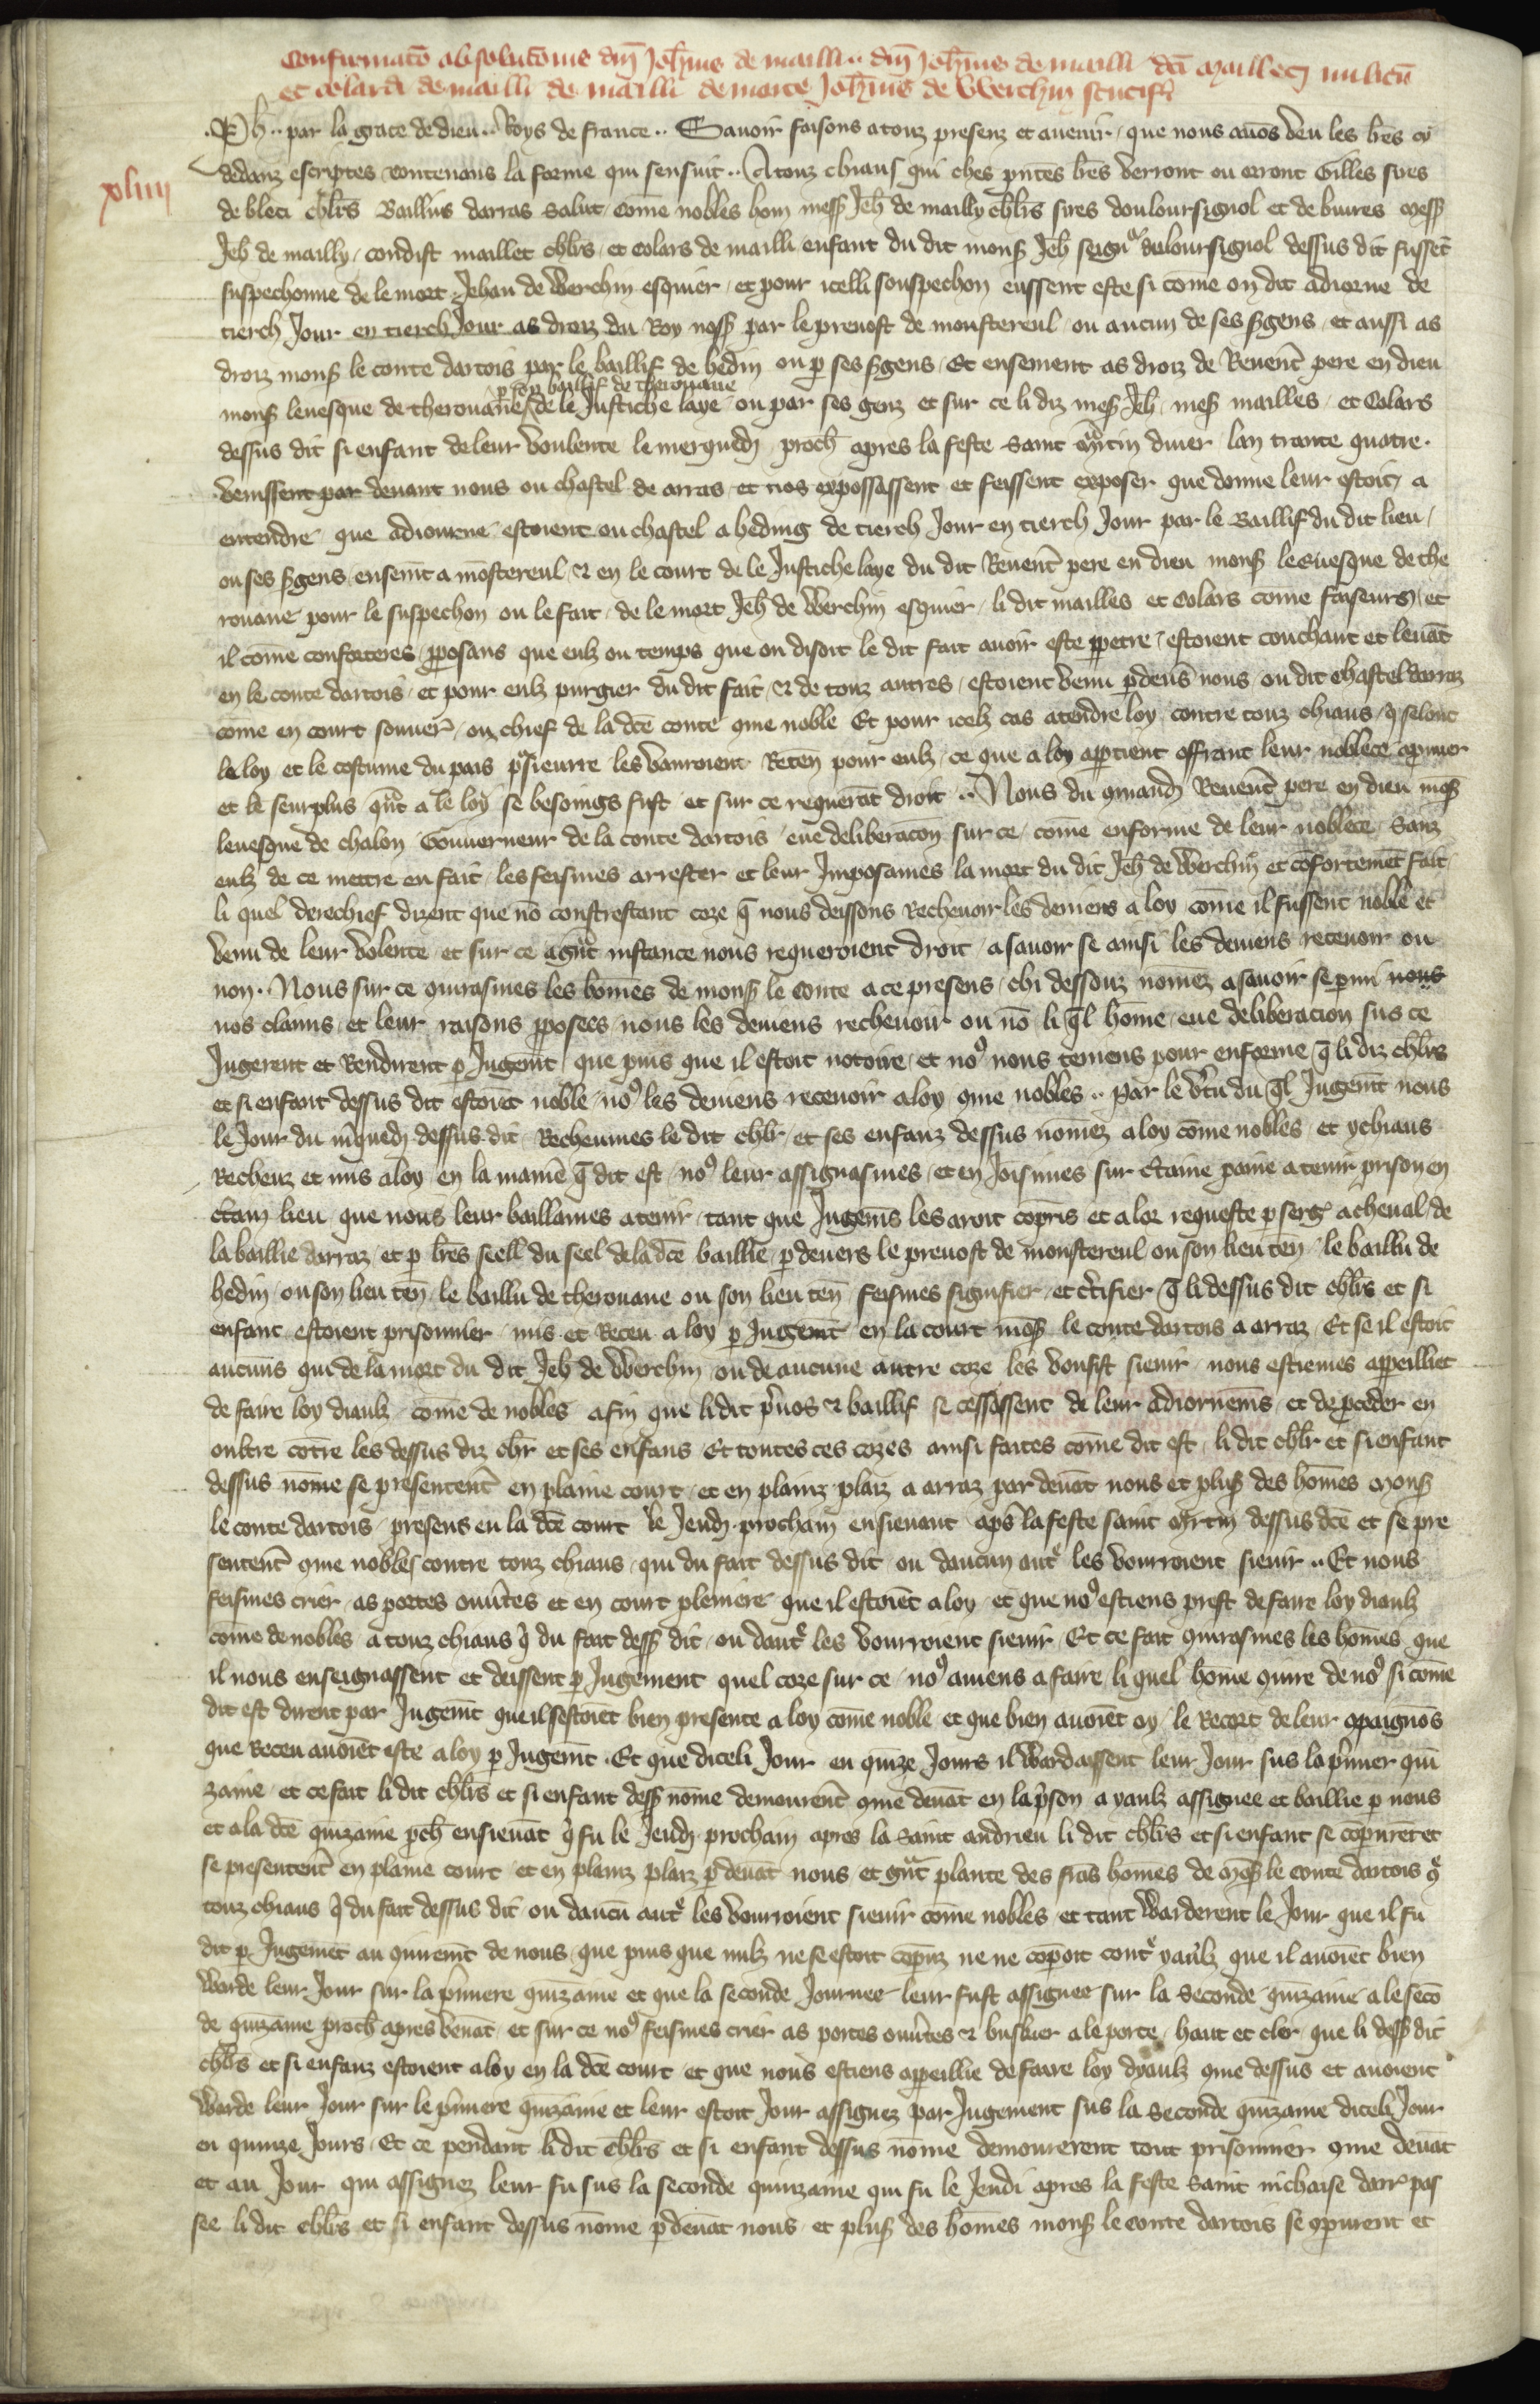 Confirmatō absolutōnis dnī Joh̄nis de mailli .. dnī Joh̄nis de mailli dc̄i Maillet militū
et colardi de mailli de mailli de morte Joh̄nis de Werchin scutifi
xliiii
Ph .. par la grace de dieu .. Roys de france .. Savoir faisons a touz presenz et avenir que nous avōs veu les lr̄es cy
dedanz escriptes contenans la forme qui sensuit .. A touz chiaus qui ches pn̄tes lr̄es verront ou orront Gilles sires
de bleci chlr̄s Baillius darras salut Come nobles hom mess Jeh̄ de mailly chlr̄s sires douloursignol et de buires mess
Jeh̄ de mailly condist maillet chlr̄s et Colars de mailli enfant du dit mons Jeh̄ seign̄r deloursignol dessus dit fussēt
suspechonne de le mort Jehan de Werchin esquier et pour icelli souspechon eussent este si come on dit adiorne de
tierch Jour en tierch Jour as droiz du Roy noss par le prevost de monstereul ou aucun de ses sgens et aussi as
droiz mons le conte dartois par le baillif de hedin ou p ses sgens Et ensement as droiz de Reverēt pere en dieu
p son baillif de therouane
mons levesque de therouane de le Justiche laye ou par ses genz et sur ce li diz mes Jeh̄ mes mailles et Colars
dessus dit si enfant de leur voulente le merquedy proch̄ apres la feste saint m̄rtin diver lan trante quatre
venissent par devant nous ou chastel de arras et nos expossassent et feissent exposer que donne leur estoit a
entendre que adiourne estoient ou chastel a heding de tierch Jour en tierch Jour par le Baillif du dit lieu
ou ses sgens ensemt̄ a mōstereul et en le court de le Justiche laye du dit Reverēt pere en dieu mons levesque de the
rouane pour le suspechon ou le fait de le mort Jeh̄ de Werchin esquier li dit mailles et Colars come faiseurs et
il come conforteres pposans que eulz ou temps que on disoit le dit fait avoir este ppetre estoient couchant et levāt
en le conte dartois et pour eulz purgier du dit fait et de touz autres estoient venu p devs̄ nous ou dit chastel darraz
come en court souver̄ ou chief de la dc̄e conte 9me noble Et pour icelz cas atendre loy contre touz chiaus q̄ selonc
le loy et le costume du pais p̄sieurre les vaurroient Reten̄ pour eulz ce que a loy apptient offrant leur noblece apruver
et le seurplus qn̄t a le loy se besoings fust et sur ce requerāt droit .. Nous du 9mandy Reverēt pere en dieu mōs
levesque de chalon Gouverneur de la conte dartois eue deliberacōn sur ce come enforme de leur noblece sanz
eulz de ce mettre en fait les feismes arrester et leur Imposames la mort du dit Jeh̄ de Werchin et cōfortemēt fait
li quel derechief dirent que nō constrestant coze q̄ nous deissons Rechevoir les deviens a loy come il fussent noble et
venu de leur volente et sur ce a gn̄t instance nous requeroient droit a savoir se ainsi les deviens recevoir ou
non . Nous sur ce 9iurasmes les homes de mons le Conte a ce presens chi dessouz nomez a savoir se pmi nous
nos clains et leur raisons pposees nous les deviens rechevoir ou nō li q̄l home eue deliberacion sus ce
Jugerent et Rendirent p Jugemt̄ que puis que il estoit notoire et no9 nous teniens pour enforme q̄ li diz chlr̄s
et si enfant dessus dit estoiēt noble no9 les deviens recevoir a loy 9me nobles .. par le v̄tu du q̄l Jugemt̄ nous
le Jour du m̄quedy dessus dit Recheumes le dit chlr̄ et ses enfanz dessus nomez a loy come nobles et ychiaus
Recheuz et mis a loy en la manie q̄ dit est no9 leur assignasmes et en Joisimes sur c̄taine paine a tenir prison en
c̄tain lieu que nous leur baillames a tenir tant que Jugemēs les aroit cōpris et a lor requeste p serḡ a cheval de
la baillie darraz et p lr̄es seell du seel de la dc̄e baillie p devers le prevost de monstereul ou son lieu ten̄ le bailliu de
hedin ou son lieu ten̄ le bailliu de therouane ou son lieu ten̄ feismes signifier et c̄tifier q̄ li dessus dit chlr̄s et si
enfant estoient prisonnier mis et Receu a loy p Jugemt̄ en la court mōs le conte dartois a arraz Et se il estoit
aucuns qui de la mort du dit Jeh̄ de Werchin ou de aucune autre coze les vousist sievir nous estiemes appeilliet
de faire loy diaulz come de nobles afin que li dit p̄vos et baillif se cessassent de leur adiornemēs et de pceder en
oultre cōtre les dessus diz chlr̄ et ses enfans Et toutes ces cozes ainsi faites come dit est li dit chlr̄ et si enfant
dessus nome se presentent̄ en plaine court et en plainz plaiz a arraz par devāt nous et plus̄ des homes mons
le conte dartois presens en la dc̄e court le Jeudy prochain ensievant aps̄ la feste saint m̄rtin dessus dc̄e et se pre
sentent̄ 9me nobles contre touz chiaus qui du fait dessus dit ou daucun autr̄ les vourroient sievir .. Et nous
feismes crier as portes ouvt̄es et en court pleniere que il estoiēt a loy et que no9 estiens prest de faire loy diaulz
come de nobles a touz chiaus q̄ du fait dess̄ dit ou dautr̄ les vourroient sievir Et ce fait 9iurasmes les homes que
il nous enseignassent et deissent p Jugement quel coze sur ce no9 aviens a faire li quel home 9iure de no9 si come
dit est dirent par Jugemt̄ que il sestoiēt bien presente a loy come noble et que bien avoiēt oy le Recort de leur 9paignōs
que Receu avoiēt este a loy p Jugemt̄ . Et que diceli Jour en quize Jours il Wardaissent leur Jour sus la p̄mier qui
zaine et ce fait li dit chlr̄s et si enfant dess̄ nome demourent̄ 9me devāt en la p̄son a yaulz assignee et baillie p nous
et a la dc̄e quizaine pch̄ ensievāt q̄ fu le Jeudy prochain apres la saint andrieu li dit chlr̄s et si enfant se cōpurēt et
se presentent̄ en plaine court et en plainz plaiz p devāt nous et gn̄t plante des frās homes de mōs le conte dartois 9tr̄
touz chiaus q̄ du fait dessus dit ou daucū autr̄ les vourroient sievir come nobles et tant Warderent le Jour que il fu
dit p Jugemēt au 9iuremt̄ de nous que puis que nulz ne se estoit cōpuz ne ne cōpoit cont̄ yaulz que il avoiēt bien
Warde leur Jour sur la p̄miere quizaine et que la seconde Journee leur fust assignee sur la seconde quizaine a le secō
de quizaine proch̄ apres venāt et sur ce no9 feismes crier as portes ouvt̄es et buskier a le porte haut et cler que li dess̄ dit
chlr̄s et si enfanz estoient a loy en la dc̄e court et que nous estiens appeillie de faire loy dyaulz 9me dessus et avoient
Warde leur Jour sur le p̄miere quizaine et leur estoit Jour assignez par Jugement sus la seconde quizaine diceli Jour
en quinze Jours Et ce pendant li dit chlr̄s et si enfant dessus nome demourerent tout prisonnier 9me devāt
et au Jour qui assignez leur fu sus la seconde quinzaine qui fu le Jeudi apres la feste saint nichaise darr̄ pas
see li dit chlr̄s et si enfant dessus nome p devāt nous et plus̄ des homes mons le conte dartois se 9purent et